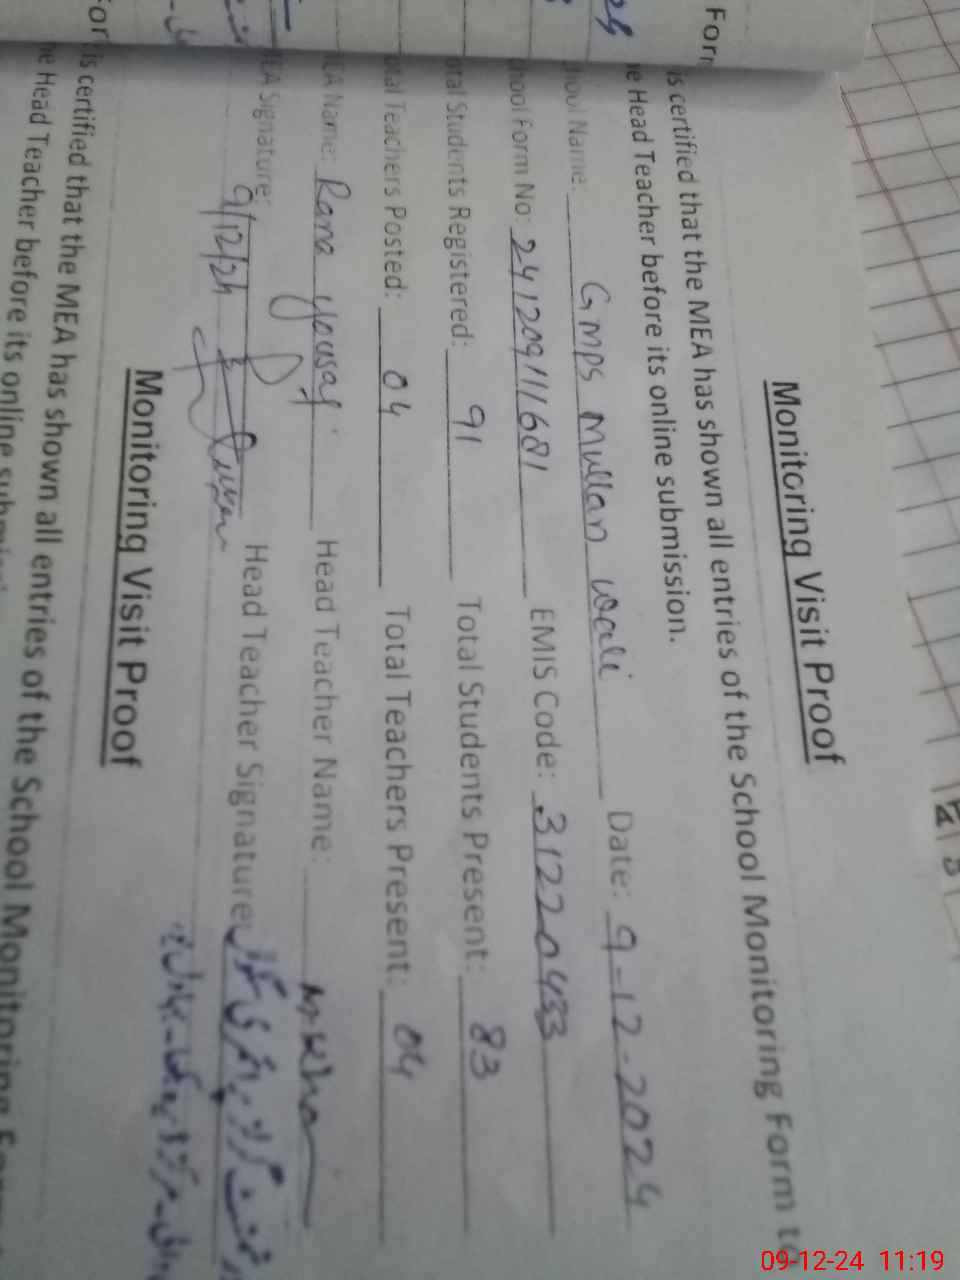 For
Monitoring Visit Proof
is certified that the MEA has shown all entries of the School Monitoring Form to
e Head Teacher before its online submission.
hool Name: GMPS Mullan wali Date: 9-12-2024
hool Form No: 241209111681 EMIS Code: 31220433
otal Students Registered: 91 Total Students Present: 83
otal Teachers Posted: 04 Total Teachers Present: 04
EA Name: Rana yousaf Head Teacher Name:
EA Signature: Head Teacher Signature
9/12/24
Monitoring Visit Proof
For
is certified that the MEA has shown all entries of the School Monitoring
he Head Teacher before its online
09-12-24 11:19